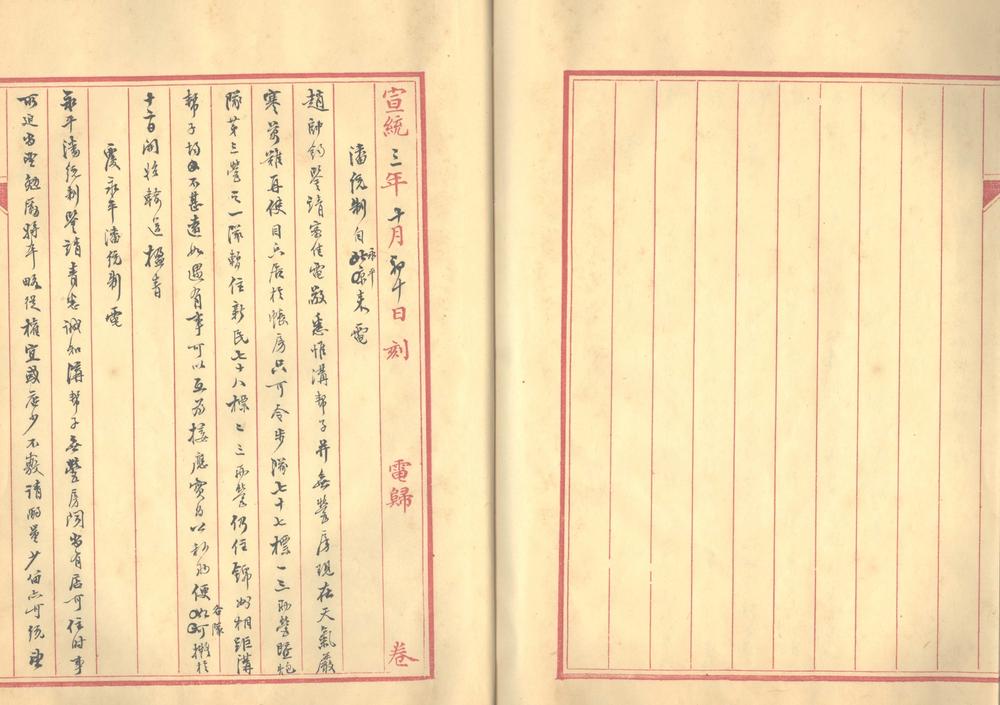 宣統三年十月初十日刻 電歸 卷
潘統制自永平來電
趙帥鈞鑒請客佳電敬悉惟溝幫子并無營房現在天氣嚴
寒萬難再使目兵居於帳房只可令步隊七十七標一三兩營暨炮
隊第三營之一隊暫住新民七十八標二三兩營仍住錦州相距溝
幫子均不甚遠如遇有事可以互為接應實為以利便各隊可擬於
十一日開始輸送楹青
覆永平潘統制電
永平潘統制鑒請青悉誠如溝幫子無營房開當有居可住時事
所迫當望勉勵將卒略從權宜或茬少不敷請酌量少留亦可統望